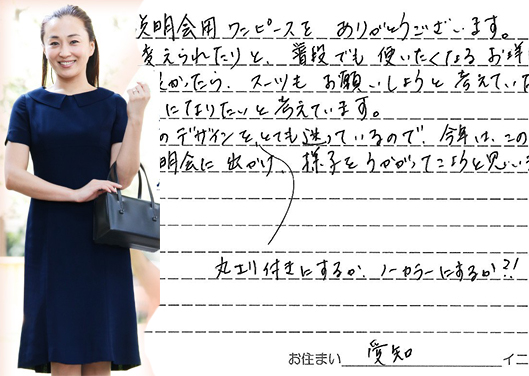 説明会用 ワンピースを ありがとうございます。
変えられたりと、普段でも 使いたくなる お洋
良かったら、スーツも お願いしようと 考えていた
になりたいと考えています。
のデザインを、とても迷っているので、今年は、この
明会に 出かけ、様子をうかがってこようと思い
丸エリ付きにするか、ノーカラーにするか?!
お住まい 愛知 イニ